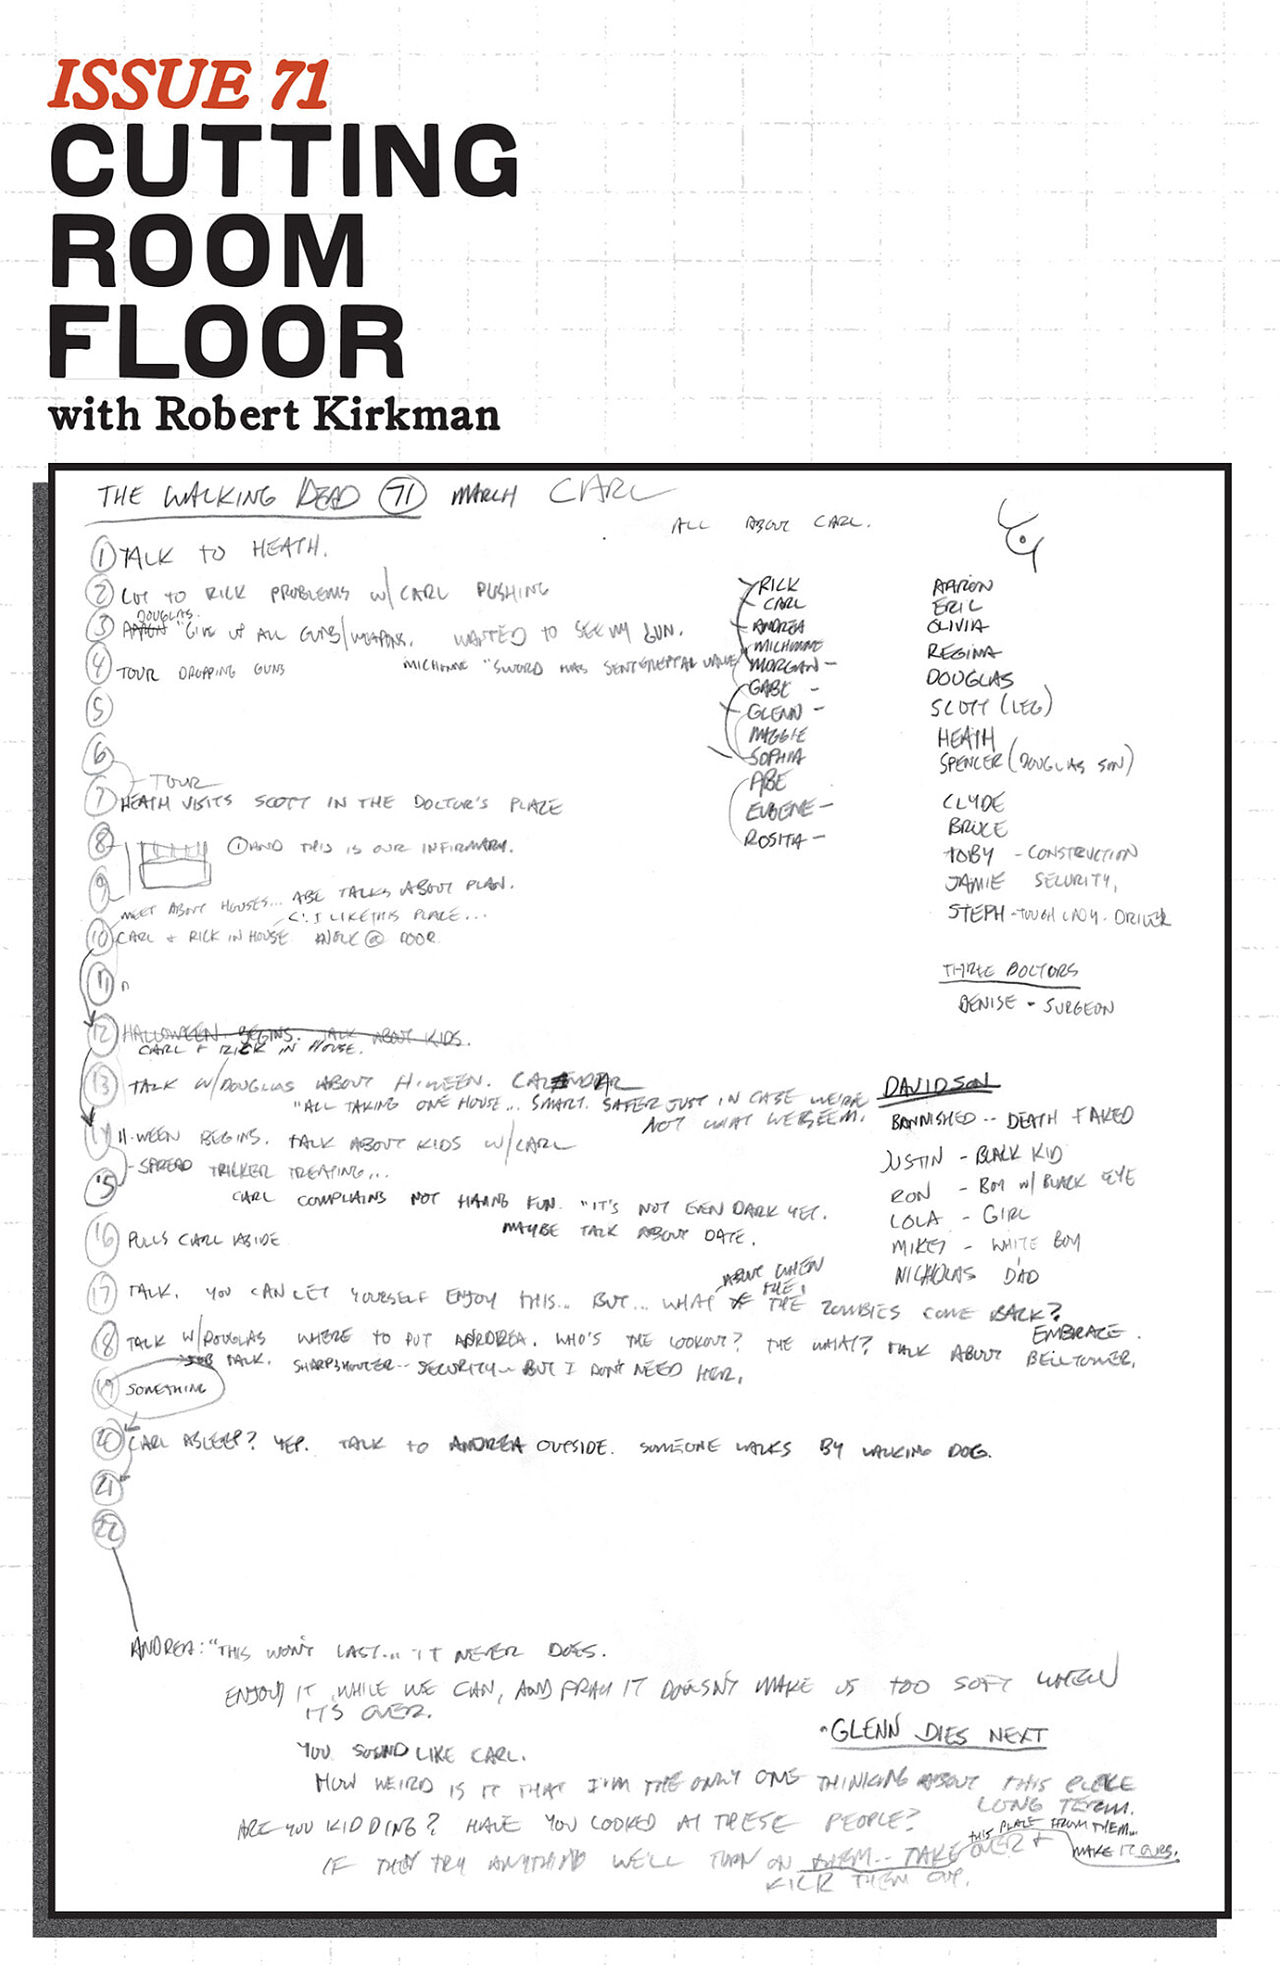 ISSUE 71
CUTTING
ROOM
FLOOR
with Robert Kirkman
THE WALKING DEAD 71 MARCH CARL
ALL ABOUT CARL.
1 TALK TO HEATH.
2 CUT TO RICK PROBLEMS W/ CARL PUSHING
DOUGLAS.
3 AARON "GIVE UP ALL GUNS/WEAPONS. WANTED TO SEE MY GUN.
4 TOUR DROPPING GUNS MICHONNE "SWORD HAS SENTEMENTAL VALUE
5
6
TOUR
7 HEATH VISITS SCOTT IN THE DOCTOR'S PLACE
8 1 AND THIS IS OUR INFIRMARY.
9
MEET ABOUT HOUSES... ABE TALKS ABOUT PLAN.
C: I LIKE THIS PLACE...
10 CARL + RICK IN HOUSE KNOCK @ DOOR
11 "
12 HALLOWEEN BEGINS. TALK ABOUT KIDS.
CARL + RICK IN HOUSE.
13 TALK W/DOUGLAS ABOUT H-WEEN. CALENDAR
"ALL TAKING ONE HOUSE... SMART. SAFER JUST IN CASE WE'RE
NOT WHAT WE SEEM.
14 H-WEEN BEGINS. TALK ABOUT KIDS W/CARL
- SPREAD TRICKER TREATING...
15
CARL COMPLAINS NOT HAVING FUN. "IT'S NOT EVEN DARK YET.
MAYBE TALK ABOUT DATE.
16 PULLS CARL ASIDE
17 TALK. YOU CAN LET YOURSELF ENJOY THIS... BUT... WHAT ABOUT WHEN THE ZOMBIES COME BACK?
18 TALK W/DOUGLAS WHERE TO PUT ANDREA. WHO'S THE LOOKOUT? THE WHAT? TALK ABOUT BELLTOWER.
EMBRACE.
JOB TALK. SHARPSHOOTER-- SECURITY-- BUT I DON'T NEED HER.
19 SOMETHING
20 CARL ASLEEP? YEP. TALK TO ANDREA OUTSIDE. SOMEONE WALKS BY WALKING DOG.
21
22
RICK
CARL
ANDREA
MICHONNE
MORGAN -
GABE -
GLENN -
MAGGIE
SOPHIA
ABE
EUGENE -
ROSITA -
AARON
ERIC
OLIVIA
REGINA
DOUGLAS
SCOTT (LEG)
HEATH
SPENCER (DOUGLAS SON)
CLYDE
BRUCE
TOBY - CONSTRUCTION
JAMIE SECURITY,
STEPH - TOUGH LADY - DRIVER
THREE DOCTORS
DENISE - SURGEON
DAVIDSON
BANNISHED -- DEATH FAKED
JUSTIN - BLACK KID
RON - BOY W/ BLACK EYE
LOLA - GIRL
MIKEY - WHITE BOY
NICHOLAS DAD
ANDREA: "THIS WON'T LAST... IT NEVER DOES.
ENJOY IT WHILE WE CAN, AND PRAY IT DOESN'T MAKE US TOO SOFT WHEN
IT'S OVER.
•GLENN DIES NEXT
YOU SOUND LIKE CARL.
HOW WEIRD IS IT THAT I'M THE ONLY ONE THINKING ABOUT THIS PLACE
LONG TERM.
ARE YOU KIDDING? HAVE YOU LOOKED AT THESE PEOPLE?
IF THEY TRY ANYTHING WE'LL TURN ON THEM-- TAKE THIS PLACE FROM THEM... OVER +
MAKE IT OURS.
KICK THEM OUT.